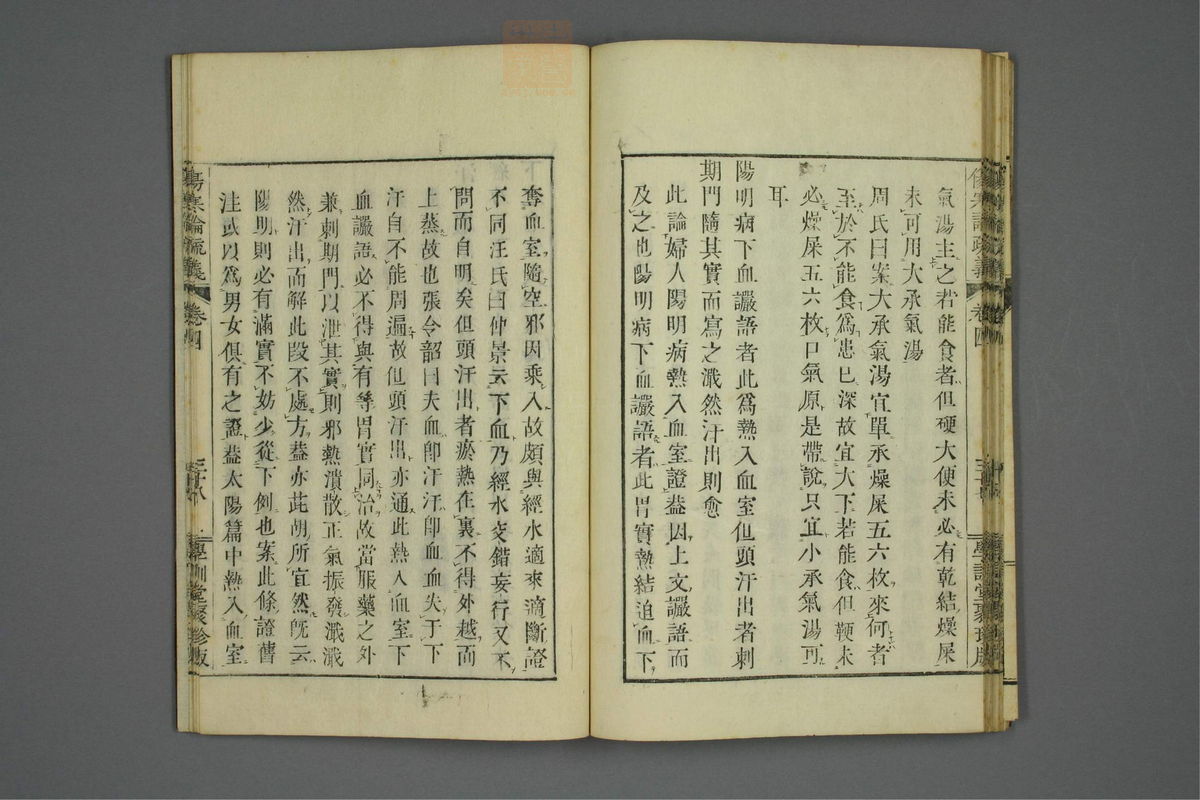 氣湯主之若能食者但硬大便未必有乾結燥屎
未可用大承氣湯
周氏曰案大承氣湯宜單承燥屎五六枚來何者
至於不能食爲患已深故宜大下若能食但鞕未
必燥屎五六枚口氣原是帶說只宜小承氣湯可
耳
陽明病下血讝語者此爲熱入血室但頭汗出者刺
期門隨其實而寫之濈然汗出則愈
此論婦人陽明病熱入血室證葢因上文讝語而
及之也陽明病下血讝語者此胃實熱結迫血下
奪血室隨空邪因乘入故頗與經水適來適斷證
不同汪氏曰仲景云下血乃經水交錯妄行又不
問而自明矣但頭汗出者瘀熱在裏不得外越而
上蒸故也張令韶曰夫血卽汗汗卽血血失于下
汗自不能周遍故但頭汗出亦通此熱入血室下
血讝語必不得與有等胃實同治故當服藥之外
兼刺期門以泄其實則邪熱潰散正氣振發濈濈
然汗出而解此段不處方葢亦茈胡所宜然旣云
陽明則必有滿實不妨少從下例也案此條證舊
註或以爲男女俱有之證葢太陽篇中熱入血室
傷寒論疏義
卷四
學訓堂聚珍版